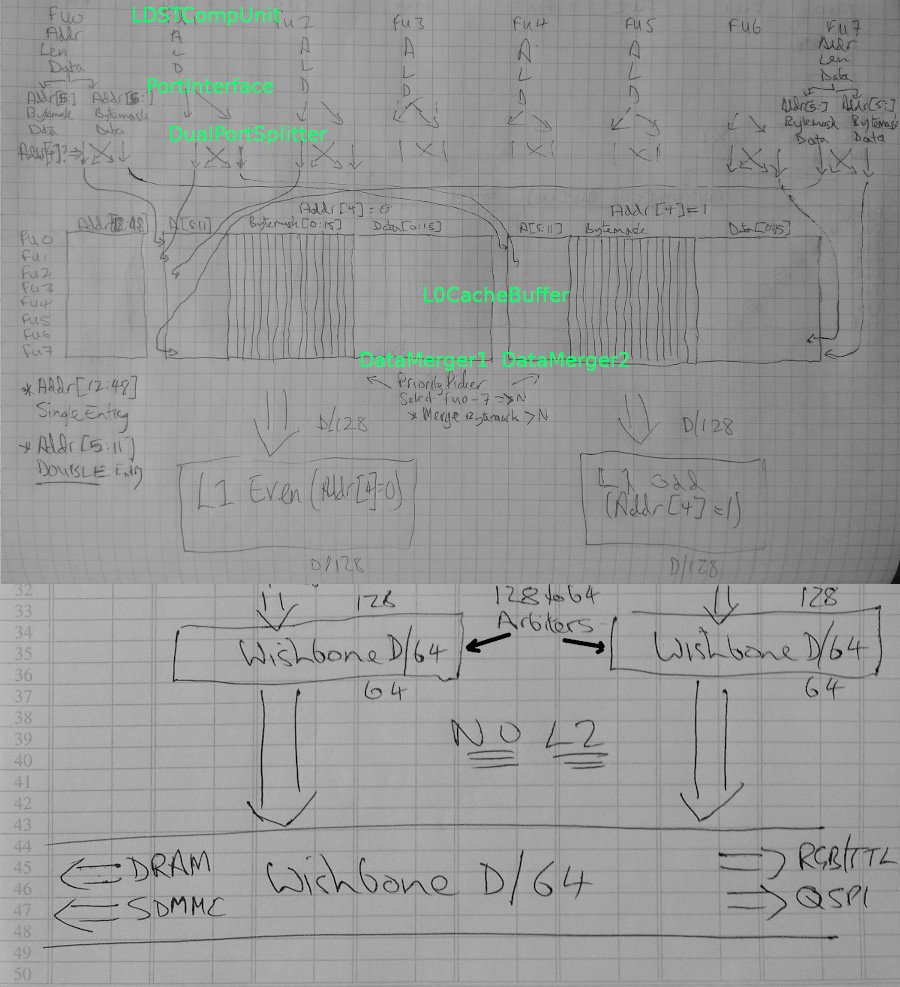 LDSTCompUnit
Fu0 Fu2 Fu3 Fu4 Fu5 Fu6 Fu7
Addr A A A A A Addr
Len L L L L L Len
Data D D D D D Data
PortInterface
Addr[5:] Addr[5:] Addr[5:] Addr[5:]
Bytemask Bytemask Bytemask Bytemask
Data Data Data Data
DualPortSplitter
Addr[4]?→
Addr[4]=0 Addr[4]=1
Addr[12:48] A[5:11] Bytemask[0:15] Data[0:15] A[5:11] Bytemask Data[0:15]
Fu0
Fu1
Fu2
Fu3
Fu4
Fu5
Fu6
Fu7
L0CacheBuffer
DataMerger1 DataMerger2
* Addr[12:48]
Single Entry
* Addr[5:11]
DOUBLE Entry
Priority Picker
Select fu0-7 => N
* Merge Bytemask > N
D/128 D/128
L1 Even (Addr[4]=0)
L1 odd
(Addr[4]=1)
D/128 D/128
32
33
34
35
36
37
38
39
40
41
42
43
44
45
46
47
48
49
50
128 128to64 128
Arbiters
Wishbone D/64 Wishbone D/64
64 64
NO L2
DRAM Wishbone D/64 RGB/TTL
SDMMC QSPI